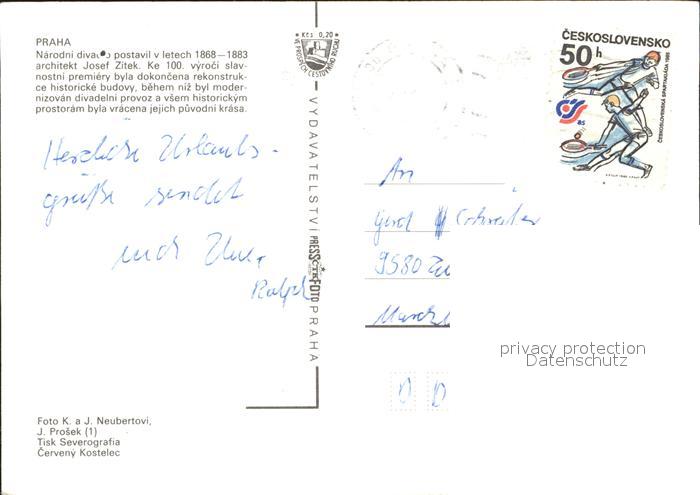 PRAHA
Národní divadlo postavil v letech 1868–1883
architekt Josef Zítek. Ke 100. výročí slav-
nostní premiéry byla dokončena rekonstruk-
ce historické budovy, během níž byl moder-
nizován divadelní provoz a všem historickým
prostorám byla vrácena jejich původní krása.
Herzliche Urlaubs-
grüße sendet
Ralph
Foto K. a J. Neubertovi,
J. Prošek (1)
Tisk Severografia
Červený Kostelec
Kčs 0,20
VE PROSPĚCH CESTOVNÍHO RUCHU
VYDAVATELSTVÍ PRESSFOTO PRAHA
ČTK
ČESKOSLOVENSKO
50 h
ČESKOSLOVENSKÁ SPARTAKIÁDA 1985
ČS
85
An
Gerd
9580 Zw
DD
privacy protection
Datenschutz